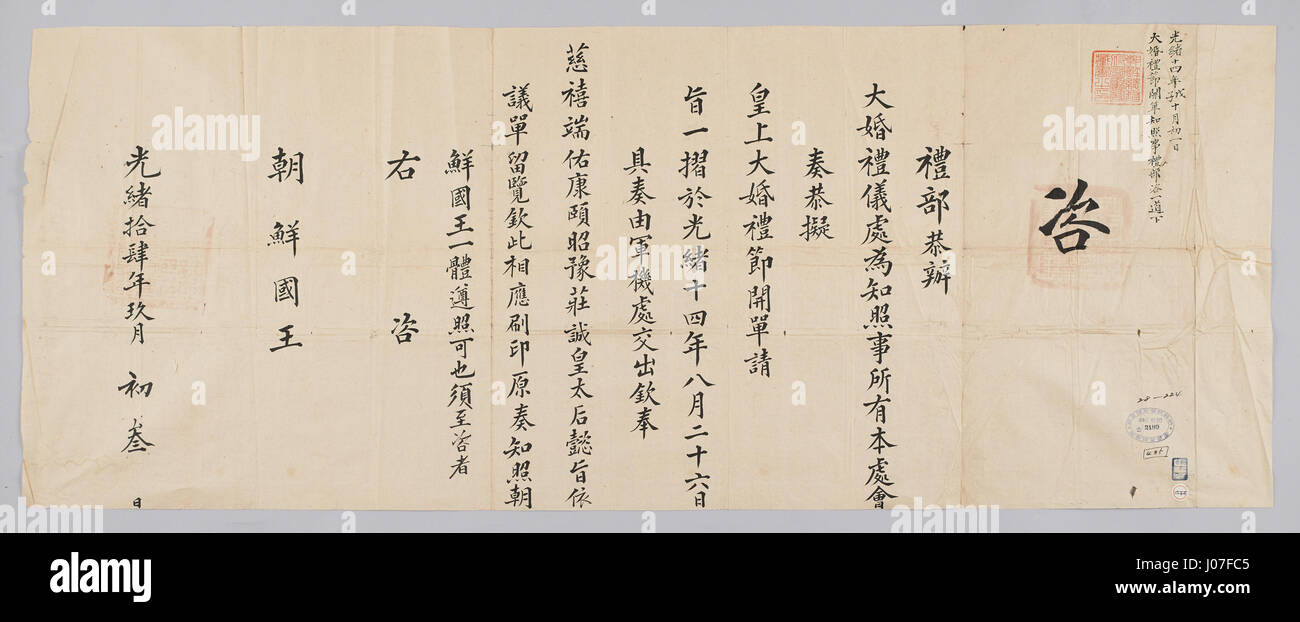 光緒十四年戊子十月初一日
大婚禮節開單知照事禮部咨一道下
咨
禮部恭辦
大婚禮儀處為知照事所有本處會
奏恭擬
皇上大婚禮節開單請
旨一摺於光緒十四年八月二十六日
具奏由軍機處交出欽奉
慈禧端佑康頤昭豫莊誠皇太后懿旨依
議單留覽欽此相應刷印原奏知照朝
鮮國王一體遵照可也須至咨者
右咨
朝鮮國王
光緒拾肆年玖月初叁日
22-224
2180
alamy
alamy stock photo
J07FC5
www.alamy.com